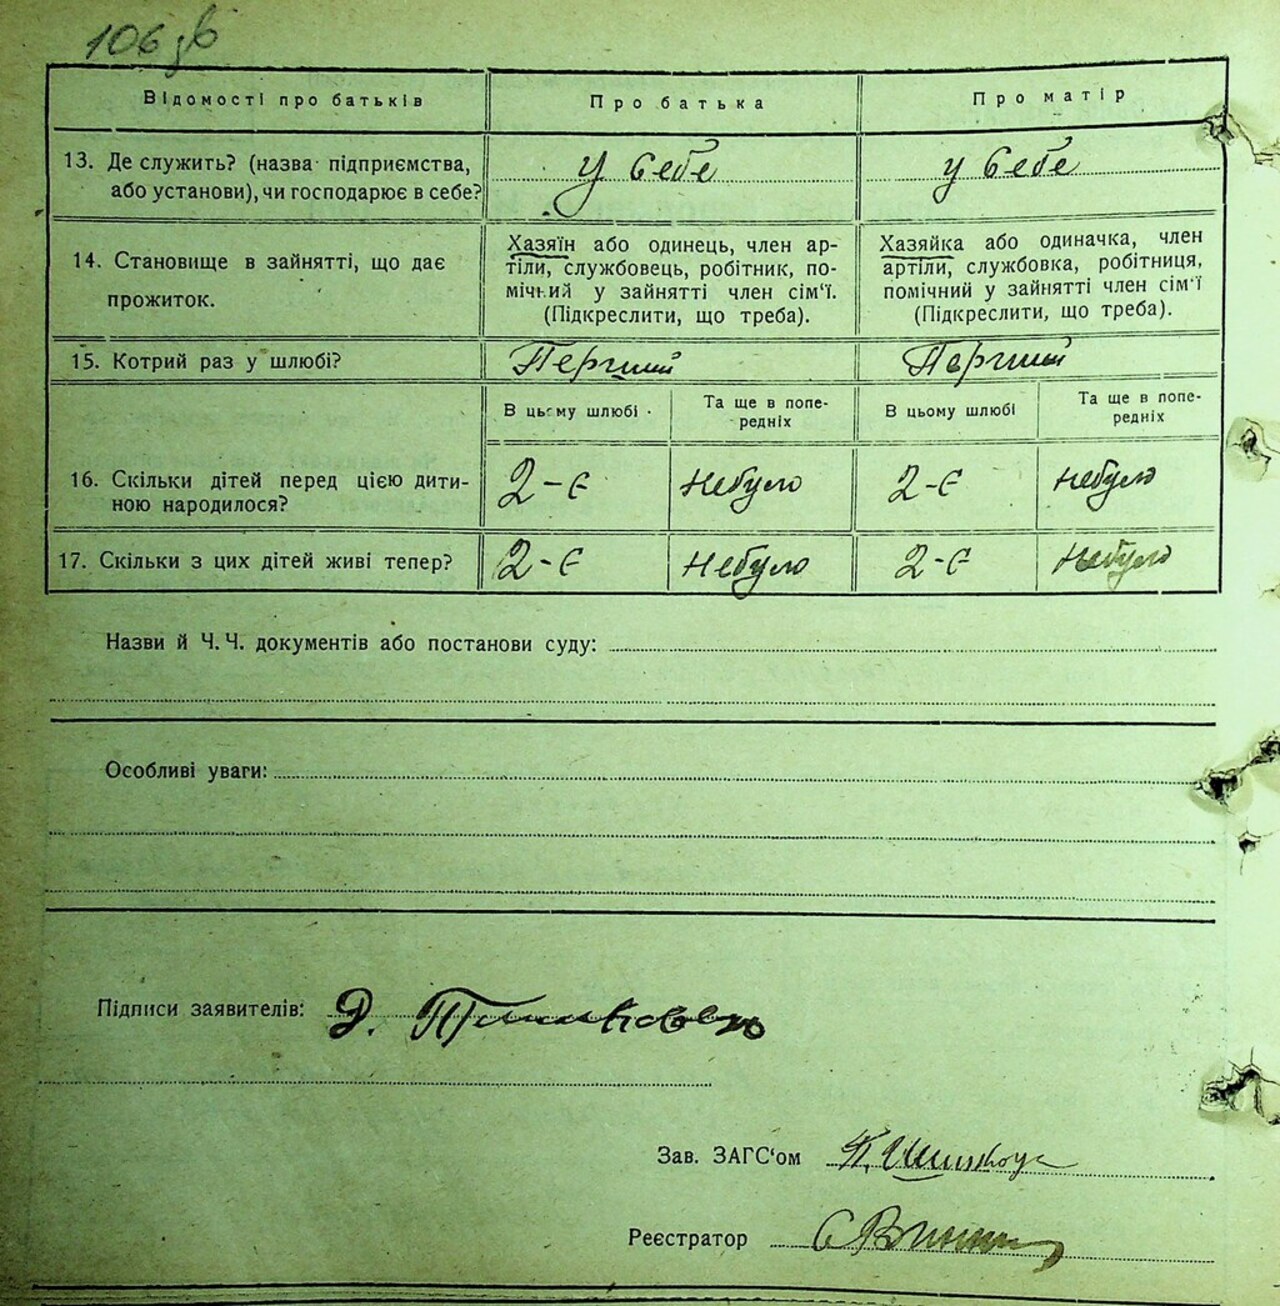 106 зв
Відомості про батьків
Про батька
Про матір
13. Де служить? (назва підприємства,
або установи), чи господарює в себе?
У себе
у себе
14. Становище в зайнятті, що дає
прожиток.
Хазяїн або одинець, член ар-
тіли, службовець, робітник, по-
мічний у зайнятті член сім‘ї.
(Підкреслити, що треба).
Хазяйка або одиначка, член
артіли, службовка, робітниця,
помічний у зайнятті член сім‘ї
(Підкреслити, що треба).
15. Котрий раз у шлюбі?
Перший
Перший
В цьому шлюбі
Та ще в попе-
редніх
В цьому шлюбі
Та ще в попе-
редніх
16. Скільки дітей перед цією дити-
ною народилося?
2-є
Небуло
2-є
небуло
17. Скільки з цих дітей живі тепер?
2-є
Небуло
2-є
Небуло
Назви й Ч. Ч. документів або постанови суду:
Особливі уваги:
Підписи заявителів: Д.
Зав. ЗАГС‘ом
Реєстратор